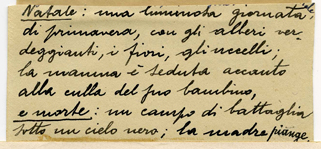 Natale: una luminosa giornata
di primavera, con gli alberi ver-
deggianti, i fiori, gli uccelli;
la mamma è seduta accanto
alla culla del suo bambino,
e morte: un campo di battaglia
sotto un cielo nero; la madre piange.